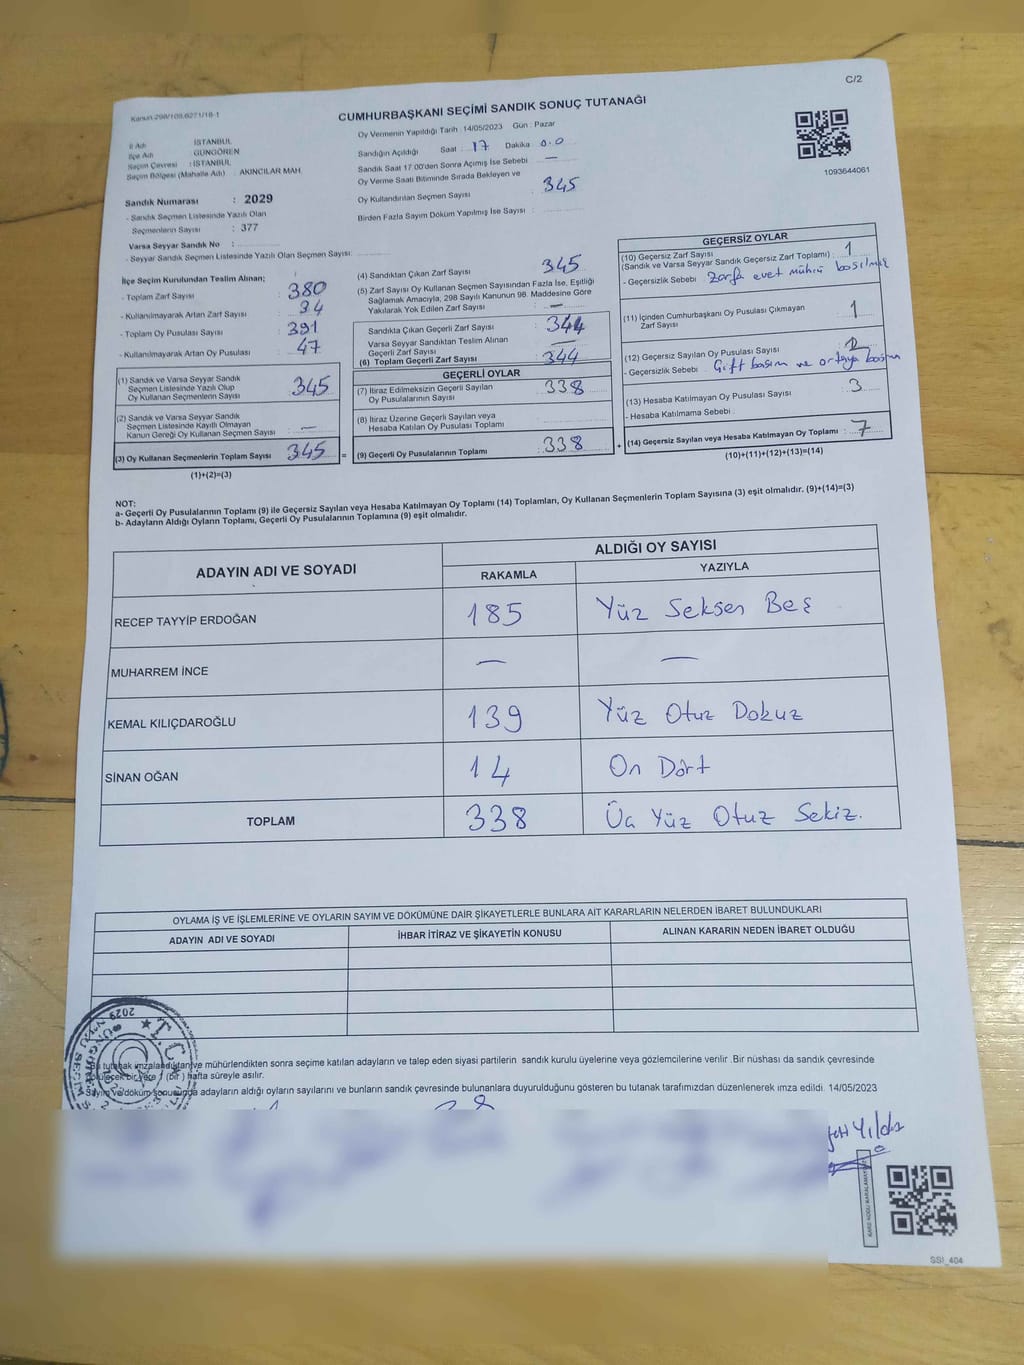 C/2
Kanun 298/109,6271/18-1
CUMHURBAŞKANI SEÇİMİ SANDIK SONUÇ TUTANAĞI
İl Adı : İSTANBUL
İlçe Adı : GÜNGÖREN
Seçim Çevresi : İSTANBUL
Seçim Bölgesi (Mahalle Adı) : AKINCILAR MAH.
Sandık Numarası : 2029
- Sandık Seçmen Listesinde Yazılı Olan
Seçmenlerin Sayısı : 377
Varsa Seyyar Sandık No :
- Seyyar Sandık Seçmen Listesinde Yazılı Olan Seçmen Sayısı:
Oy Vermenin Yapıldığı Tarih : 14/05/2023 Gün : Pazar
Sandığın Açıldığı Saat : 17 Dakika 0.0
Sandık Saat 17.00'den Sonra Açımış İse Sebebi —
Oy Verme Saati Bitiminde Sırada Bekleyen ve
Oy Kullandırılan Seçmen Sayısı 345
Birden Fazla Sayım Döküm Yapılmış İse Sayısı :
1093644061
İlçe Seçim Kurulundan Teslim Alınan;
- Toplam Zarf Sayısı : 380
- Kullanılmayarak Artan Zarf Sayısı : 34
- Toplam Oy Pusulası Sayısı : 391
- Kullanılmayarak Artan Oy Pusulası : 47
(1) Sandık ve Varsa Seyyar Sandık
Seçmen Listesinde Yazılı Olup
Oy Kullanan Seçmenlerin Sayısı 345
(2) Sandık ve Varsa Seyyar Sandık
Seçmen Listesinde Kayıtlı Olmayan
Kanun Gereği Oy Kullanan Seçmen Sayısı —
(3) Oy Kullanan Seçmenlerin Toplam Sayısı 345 =
(1)+(2)=(3)
(4) Sandıktan Çıkan Zarf Sayısı 345
(5) Zarf Sayısı Oy Kullanan Seçmen Sayısından Fazla İse, Eşitliği
Sağlamak Amacıyla, 298 Sayılı Kanunun 98. Maddesine Göre
Yakılarak Yok Edilen Zarf Sayısı : —
Sandıkta Çıkan Geçerli Zarf Sayısı 344
Varsa Seyyar Sandıktan Teslim Alınan
Geçerli Zarf Sayısı —
(6) Toplam Geçerli Zarf Sayısı : 344
GEÇERLİ OYLAR
(7) İtiraz Edilmeksizin Geçerli Sayılan
Oy Pusulalarının Sayısı : 338
(8) İtiraz Üzerine Geçerli Sayılan veya
Hesaba Katılan Oy Pusulası Toplamı
(9) Geçerli Oy Pusulalarının Toplamı : 338 +
GEÇERSİZ OYLAR
(10) Geçersiz Zarf Sayısı
(Sandık ve Varsa Seyyar Sandık Geçersiz Zarf Toplamı) : 1
- Geçersizlik Sebebi : Zarfa evet mührü basılmış
(11) İçinden Cumhurbaşkanı Oy Pusulası Çıkmayan
Zarf Sayısı : 1
(12) Geçersiz Sayılan Oy Pusulası Sayısı : 2
- Geçersizlik Sebebi : Çift basım ve ortaya basım
(13) Hesaba Katılmayan Oy Pusulası Sayısı : 3
- Hesaba Katılmama Sebebi :
(14) Geçersiz Sayılan veya Hesaba Katılmayan Oy Toplamı : 7
(10)+(11)+(12)+(13)=(14)
NOT:
a- Geçerli Oy Pusulalarının Toplamı (9) ile Geçersiz Sayılan veya Hesaba Katılmayan Oy Toplamı (14) Toplamları, Oy Kullanan Seçmenlerin Toplam Sayısına (3) eşit olmalıdır. (9)+(14)=(3)
b- Adayların Aldığı Oyların Toplamı, Geçerli Oy Pusulalarının Toplamına (9) eşit olmalıdır.
ADAYIN ADI VE SOYADI
ALDIĞI OY SAYISI
RAKAMLA YAZIYLA
RECEP TAYYİP ERDOĞAN 185 Yüz Seksen Beş
MUHARREM İNCE — —
KEMAL KILIÇDAROĞLU 139 Yüz Otuz Dokuz
SİNAN OĞAN 14 On Dört
TOPLAM 338 Üç Yüz Otuz Sekiz.
OYLAMA İŞ VE İŞLEMLERİNE VE OYLARIN SAYIM VE DÖKÜMÜNE DAİR ŞİKAYETLERLE BUNLARA AİT KARARLARIN NELERDEN İBARET BULUNDUKLARI
ADAYIN ADI VE SOYADI İHBAR İTİRAZ VE ŞİKAYETİN KONUSU ALINAN KARARIN NEDEN İBARET OLDUĞU
2029
T.C.
Bu tutanak imzalandıktan ve mühürlendikten sonra seçime katılan adayların ve talep eden siyasi partilerin sandık kurulu üyelerine veya gözlemcilerine verilir .Bir nüshası da sandık çevresinde
bir yere 1 (bir ) hafta süreyle asılır.
Sayım ve döküm sonucunda adayların aldığı oyların sayılarını ve bunların sandık çevresinde bulunanlara duyurulduğunu gösteren bu tutanak tarafımızdan düzenlenerek imza edildi. 14/05/2023
Yıldız
SSİ_404